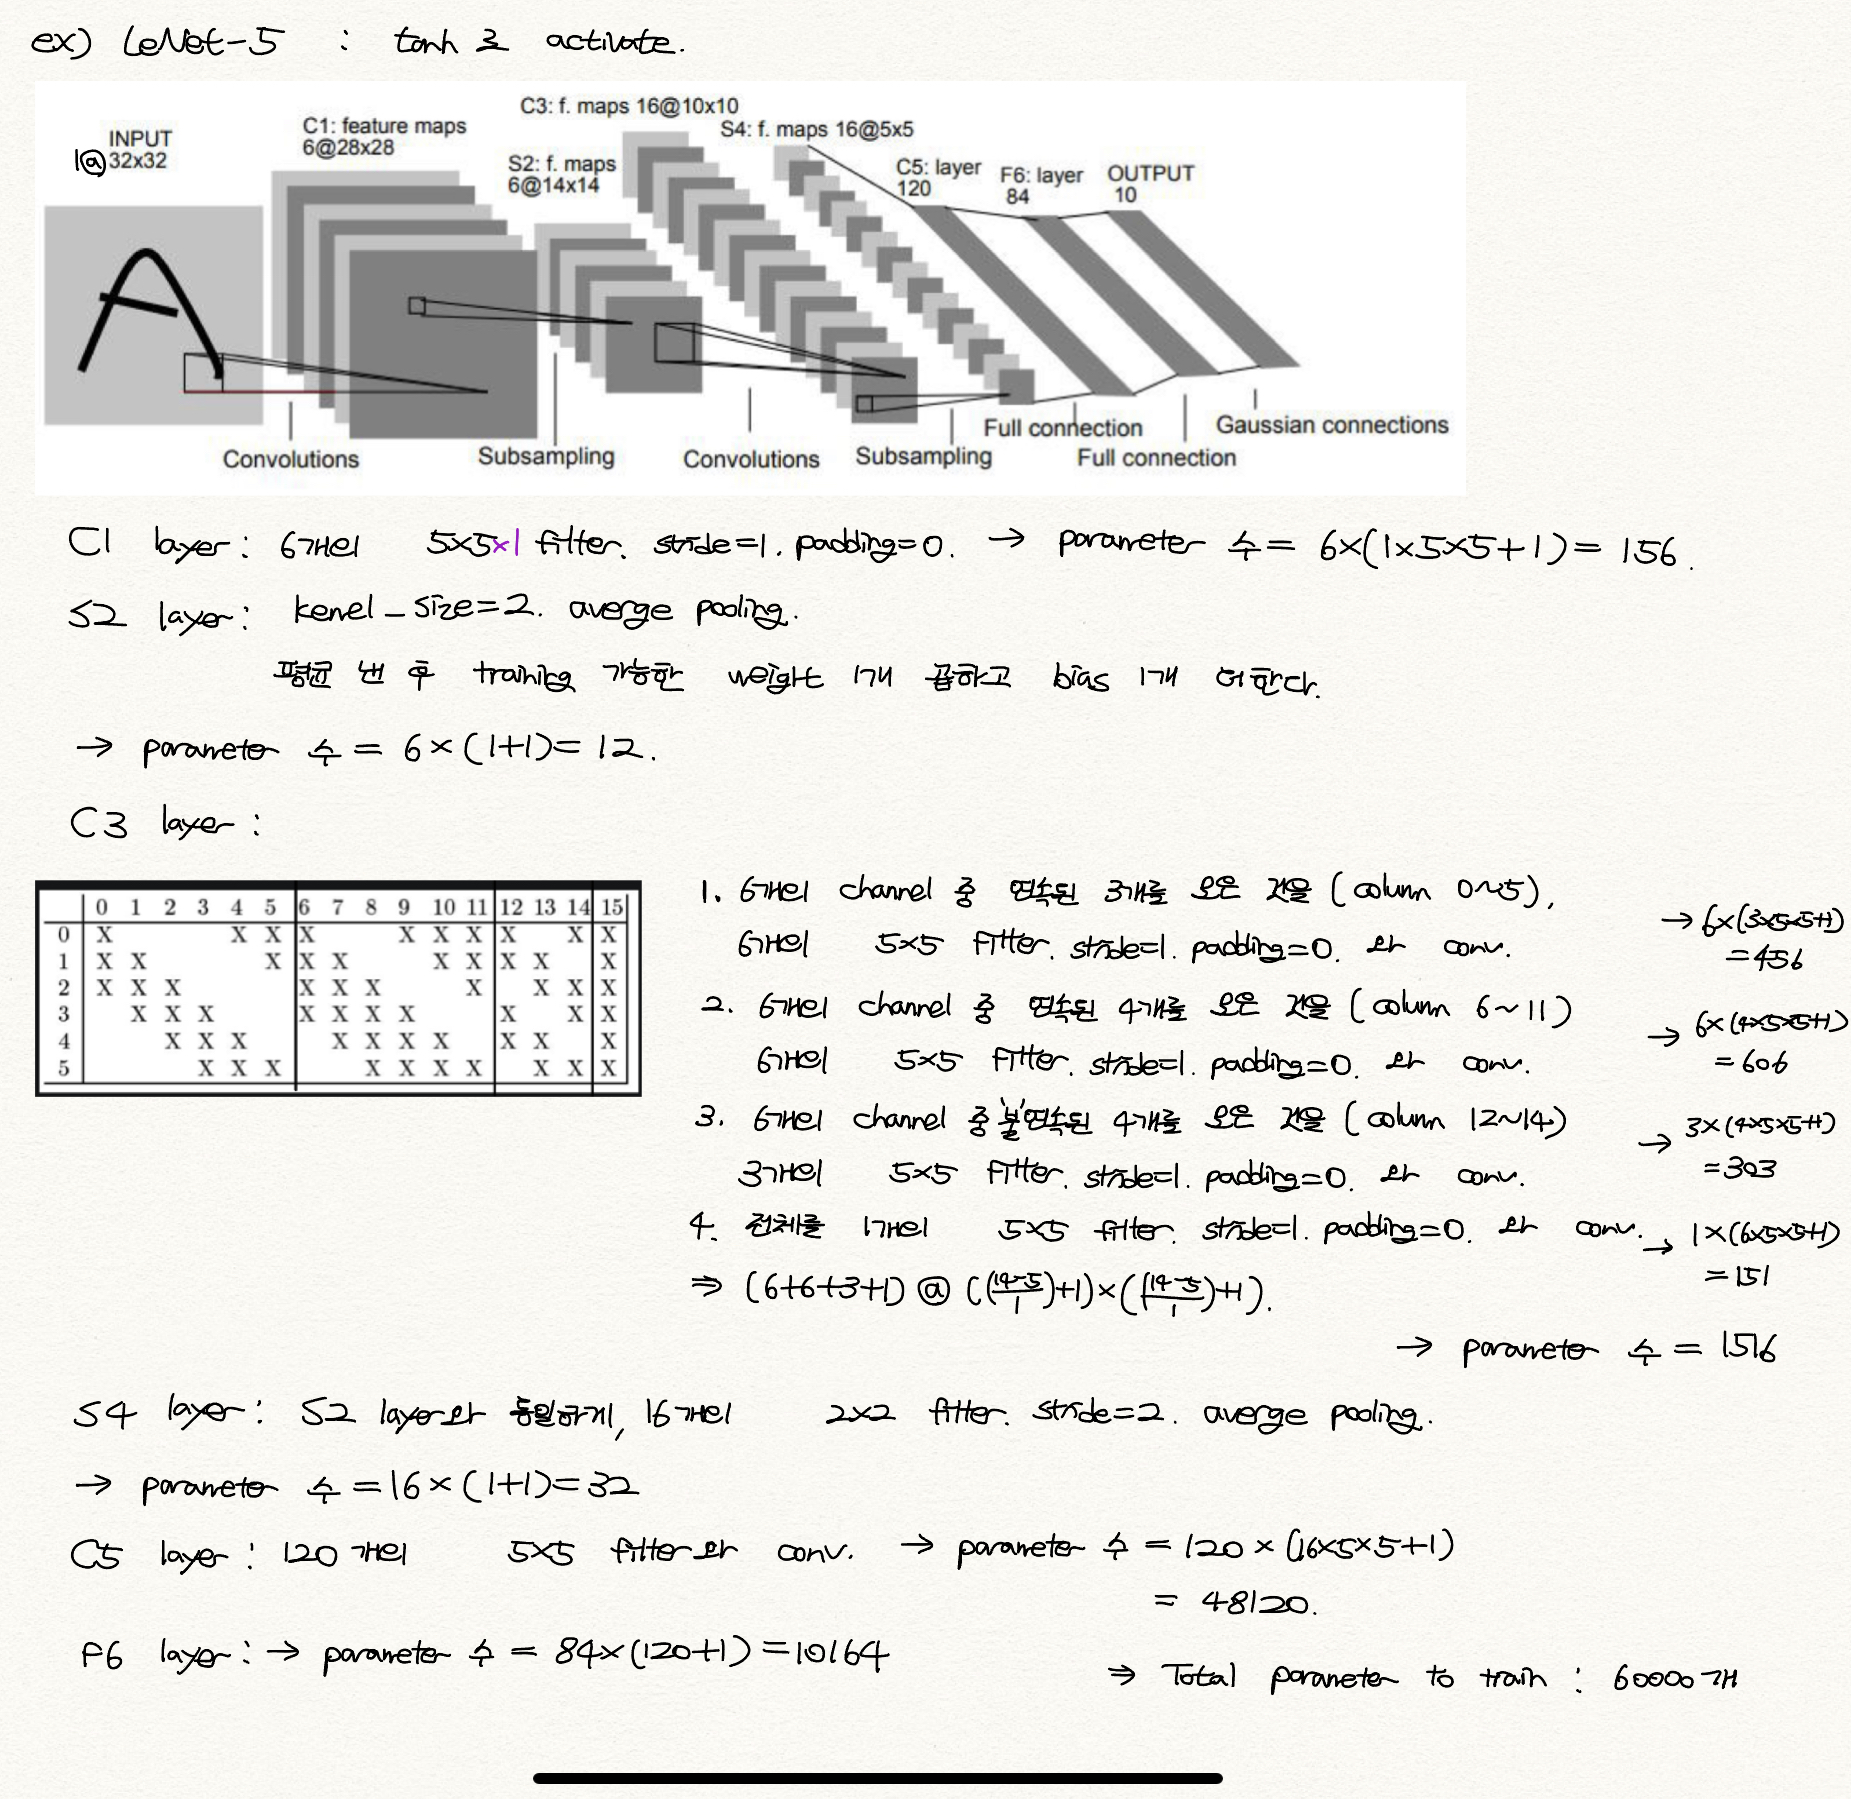 ex) LeNet-5 : tanh 로 activate.
C3: f. maps 16@10x10
INPUT
1@ 32x32
C1: feature maps
6@28x28
S4: f. maps 16@5x5
S2: f. maps
6@14x14
C5: layer
120
F6: layer
84
OUTPUT
10
Convolutions
Subsampling
Convolutions
Subsampling
Full connection
Full connection
Gaussian connections
C1 layer: 6개의 5x5x1 filter. stride=1. padding=0. → parameter 수= 6x(1x5x5+1)= 156.
S2 layer: kenel_size=2. averge pooling.
평균 낸 후 training 가능한 weight 1개 곱하고 bias 1개 더한다.
→ parameter 수 = 6x(1+1)= 12.
C3 layer:
0 1 2 3 4 5 6 7 8 9 10 11 12 13 14 15
0 X X X X X X X X X X
1 X X X X X X X X X X
2 X X X X X X X X X X
3 X X X X X X X X X X
4 X X X X X X X X X X
5 X X X X X X X X X X
1. 6개의 channel 중 연속된 3개를 모은 것을 (column 0~5),
6개의 5x5 filter. stride=1. padding=0. 와 conv.
→ 6x(3x5x5+1)
=456
2. 6개의 channel 중 연속된 4개를 모은 것을 (column 6~11)
6개의 5x5 filter. stride=1. padding=0. 와 conv.
→ 6x(4x5x5+1)
= 606
3. 6개의 channel 중 '불'연속된 4개를 모은 것을 (column 12~14)
3개의 5x5 filter. stride=1. padding=0. 와 conv.
→ 3x(4x5x5+1)
=303
4. 전체를 1개의 5x5 filter. stride=1. padding=0. 와 conv. → 1x(6x5x5+1)
=151
⇒ (6+6+3+1) @ ((14-5/1)+1)x((14-5/1)+1).
→ parameter 수 = 1516
S4 layer: S2 layer와 동일하게, 16개의 2x2 filter. stride=2. averge pooling.
→ parameter 수 =16x(1+1)=32
C5 layer: 120개의 5x5 filter와 conv. → parameter 수 = 120 x (16x5x5+1)
= 48120.
F6 layer: → parameter 수 = 84x(120+1)=10164
⇒ Total parameter to train : 60000개